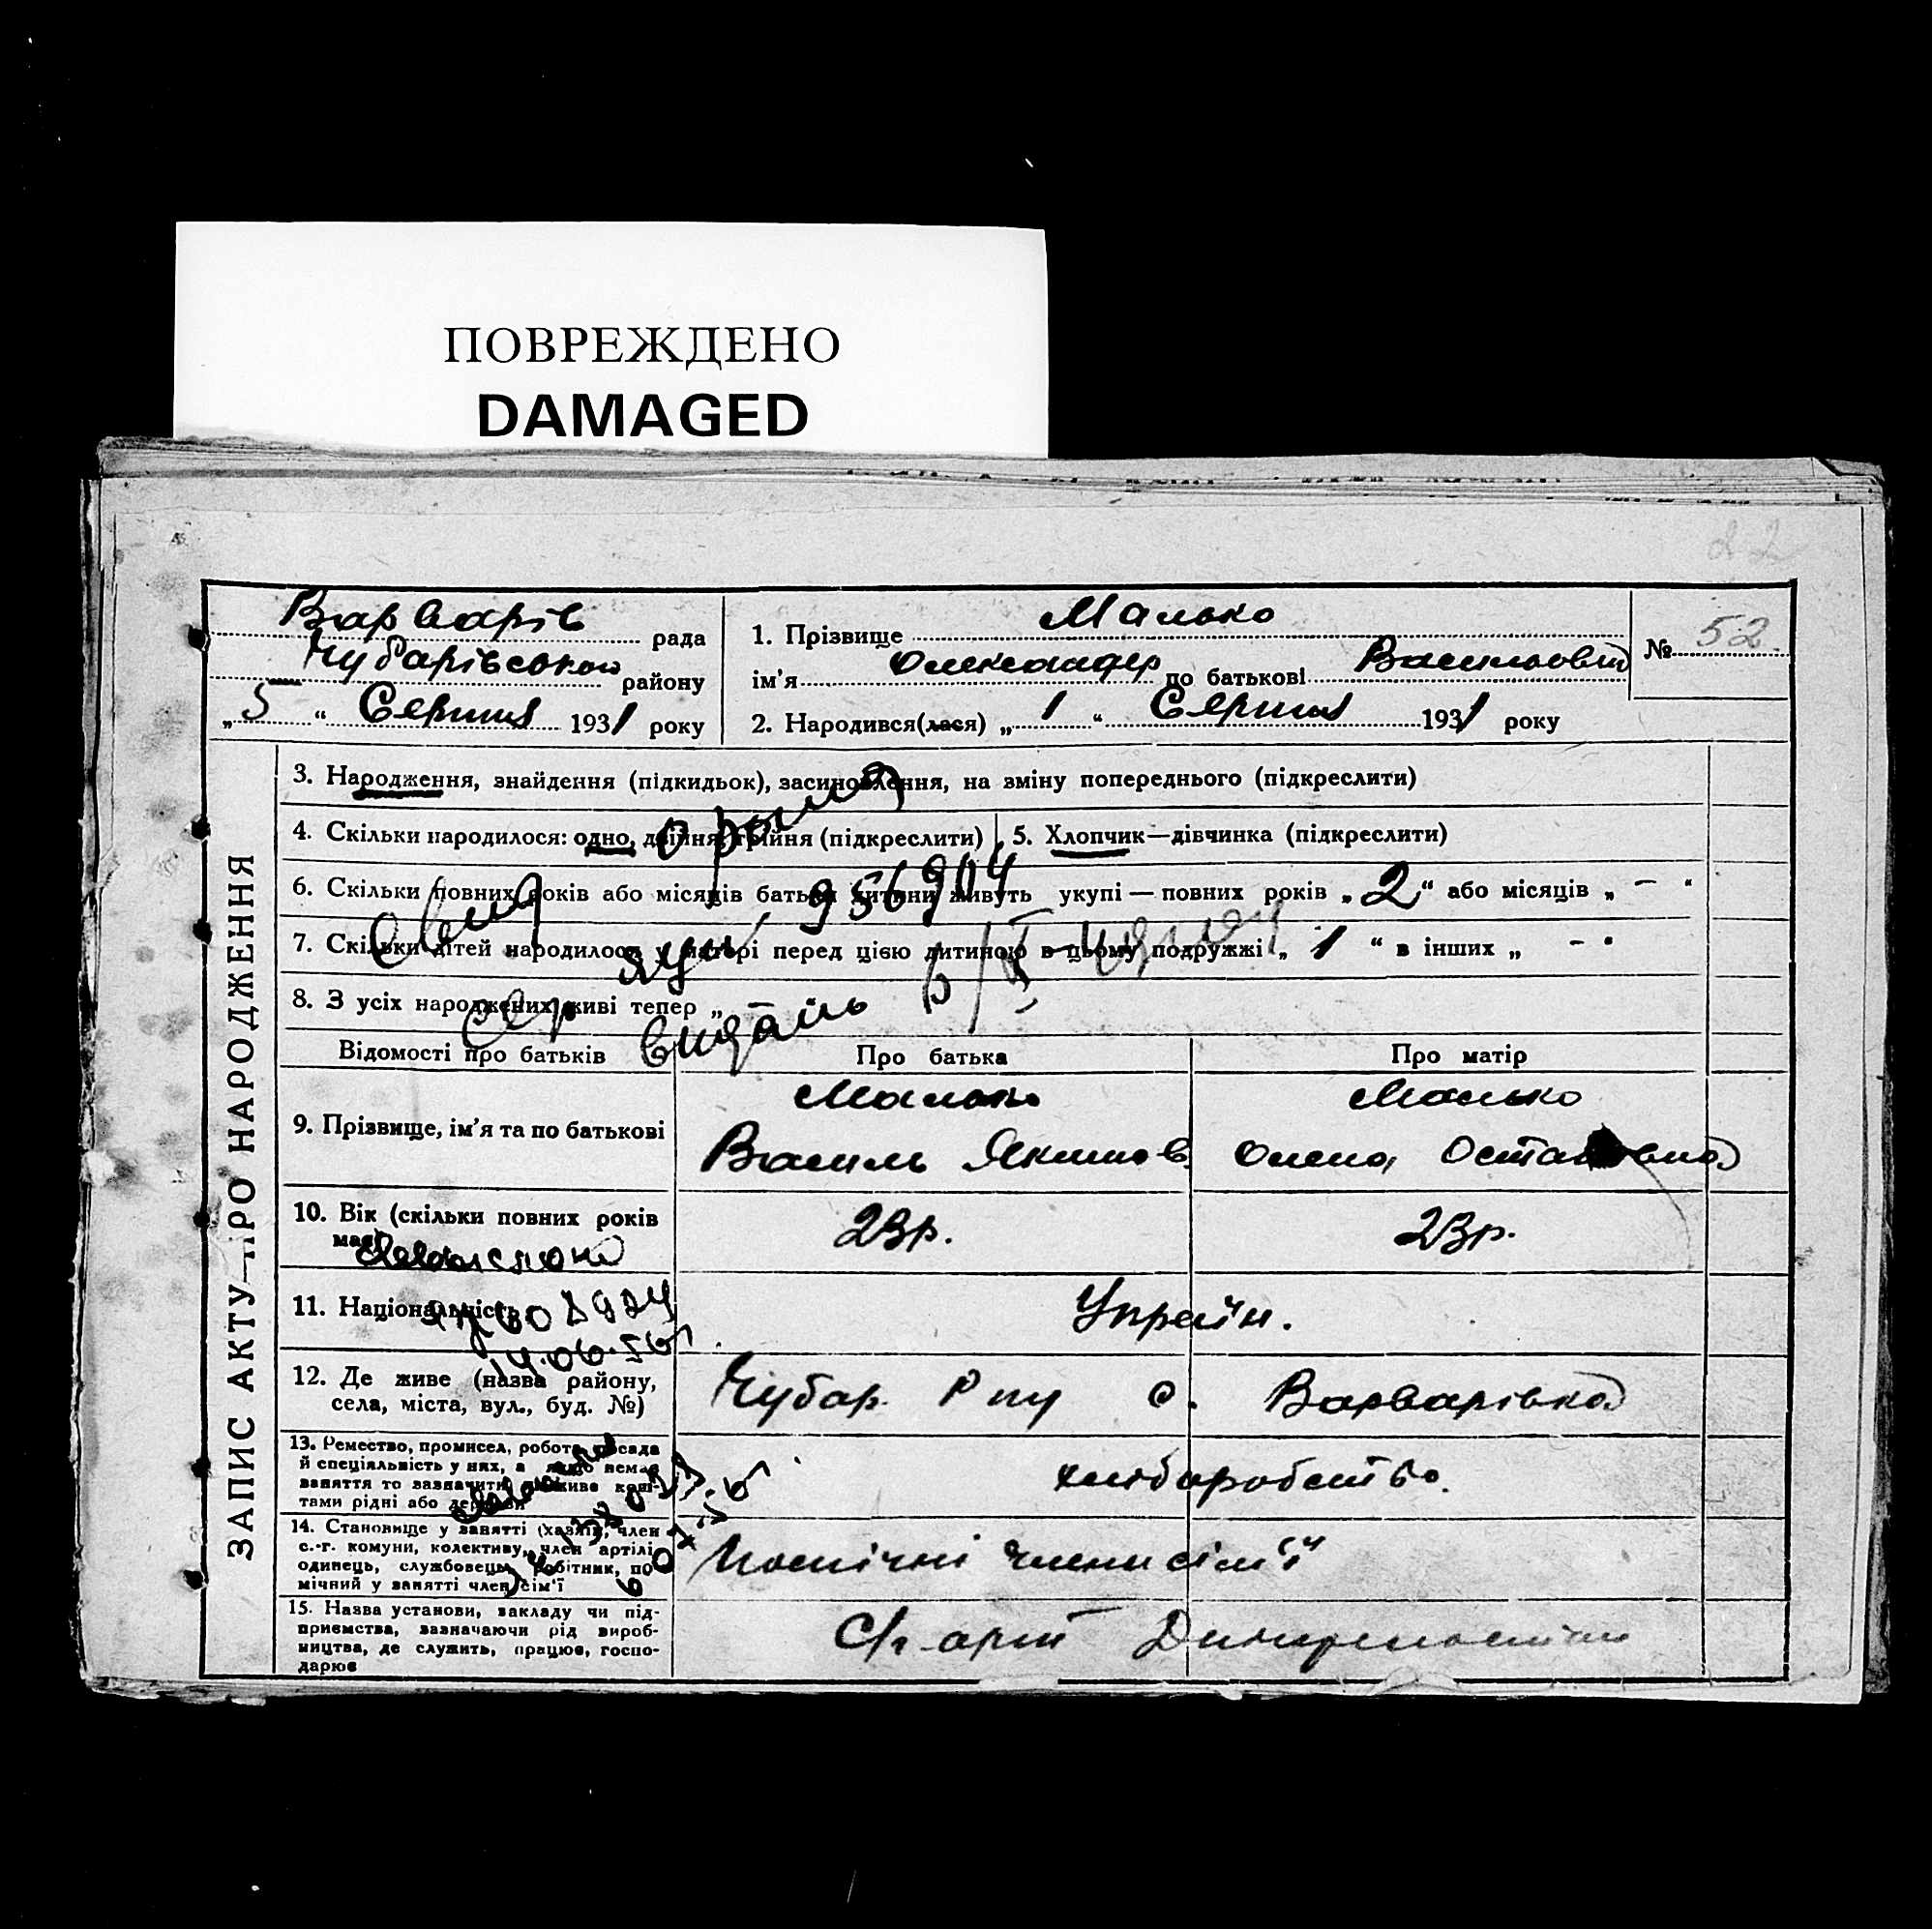 ПОВРЕЖДЕНО
DAMAGED
22
Варварів рада
Чубарівського району
„5“ Серпня 1931 року
1. Прізвище Малько
ім'я Олександер по батькові Васильович
2. Народився(лася) „1“ Серпня 1931 року
№ 52
ЗАПИС АКТУ ПРО НАРОДЖЕННЯ
3. Народження, знайдення (підкидьок), засиновлення, на зміну попереднього (підкреслити)
4. Скільки народилося: одно, двійня, трійня (підкреслити)
5. Хлопчик—дівчинка (підкреслити)
6. Скільки повних років або місяців батьки дитини живуть укупі — повних років „2“ або місяців „ – “
7. Скільки дітей народилося у матері перед цією дитиною в цьому подружжі „ 1 “ в інших „ – “
8. З усіх народжених живі тепер „
956904
видань
Відомості про батьків Про батька Про матір
9. Прізвище, ім'я та по батькові
Малько
Василь Якимов.
Малько
Олена Остаповна
10. Вік (скільки повних років має)
23 р.
23 р.
11. Національність
Україн.
14.06.56
12. Де живе (назва району, села, міста, вул., буд. №)
Чубар. Р-ну с. Варварівка
13. Ремество, промисел, робота, посада
й спеціяльність у них, а якщо немає
заняття то зазначити, що живе кош-
тами рідні або держави
хліборобство.
14. Становище у занятті (хазяїн, член
с.-г. комуни, колективу, член артілі
одинець, службовець, робітник, по-
мічний у занятті член сім'ї
Помічні члени сім'ї
15. Назва установи, закладу чи під-
приємства, зазначаючи рід вироб-
ництва, де служить, працює, госпо-
дарює
С/г арт